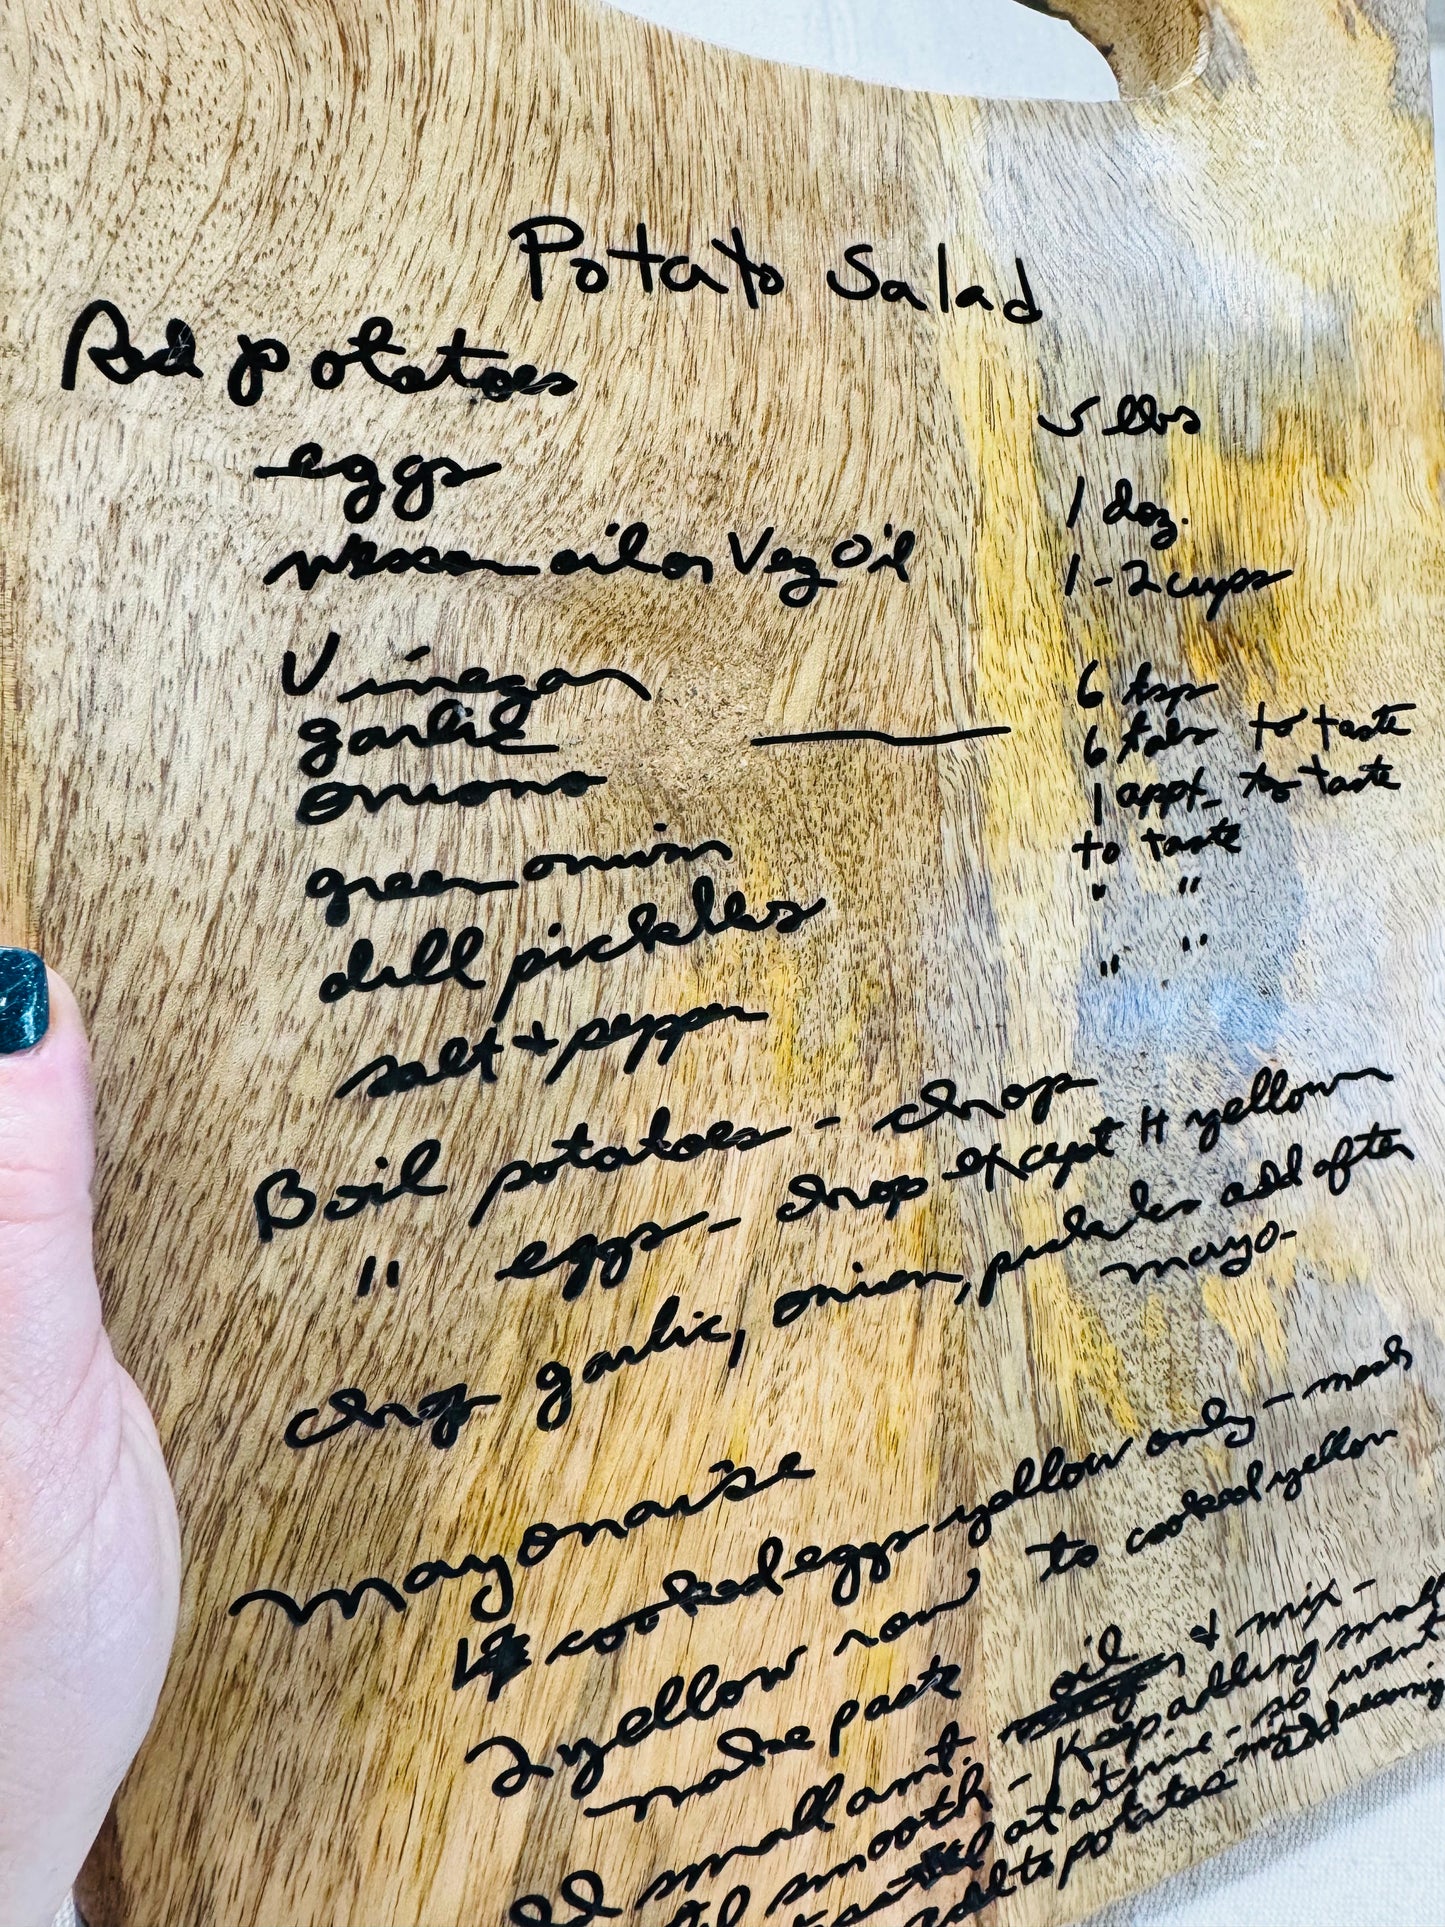 Potato Salad
Red potatoes 5 lbs
eggs 1 doz.
wesson oil or Veg Oil 1-2 cups
Vinegar 6 tsp
garlic 6 tabs to taste
onions 1 appx- to taste
green onion to taste
dill pickles " "
salt + pepper " "
Boil potatoes - chop
" eggs - chop except 4 yellow
chop garlic, onion, pickles add after
mayo-
mayonaise
4 cooked eggs yellow only - mash
2 yellow raw to cooked yellow
make paste
small amt. oil & mix -
smooth - Keep adding small
at a time - so want
add to potatoes - add seasoning